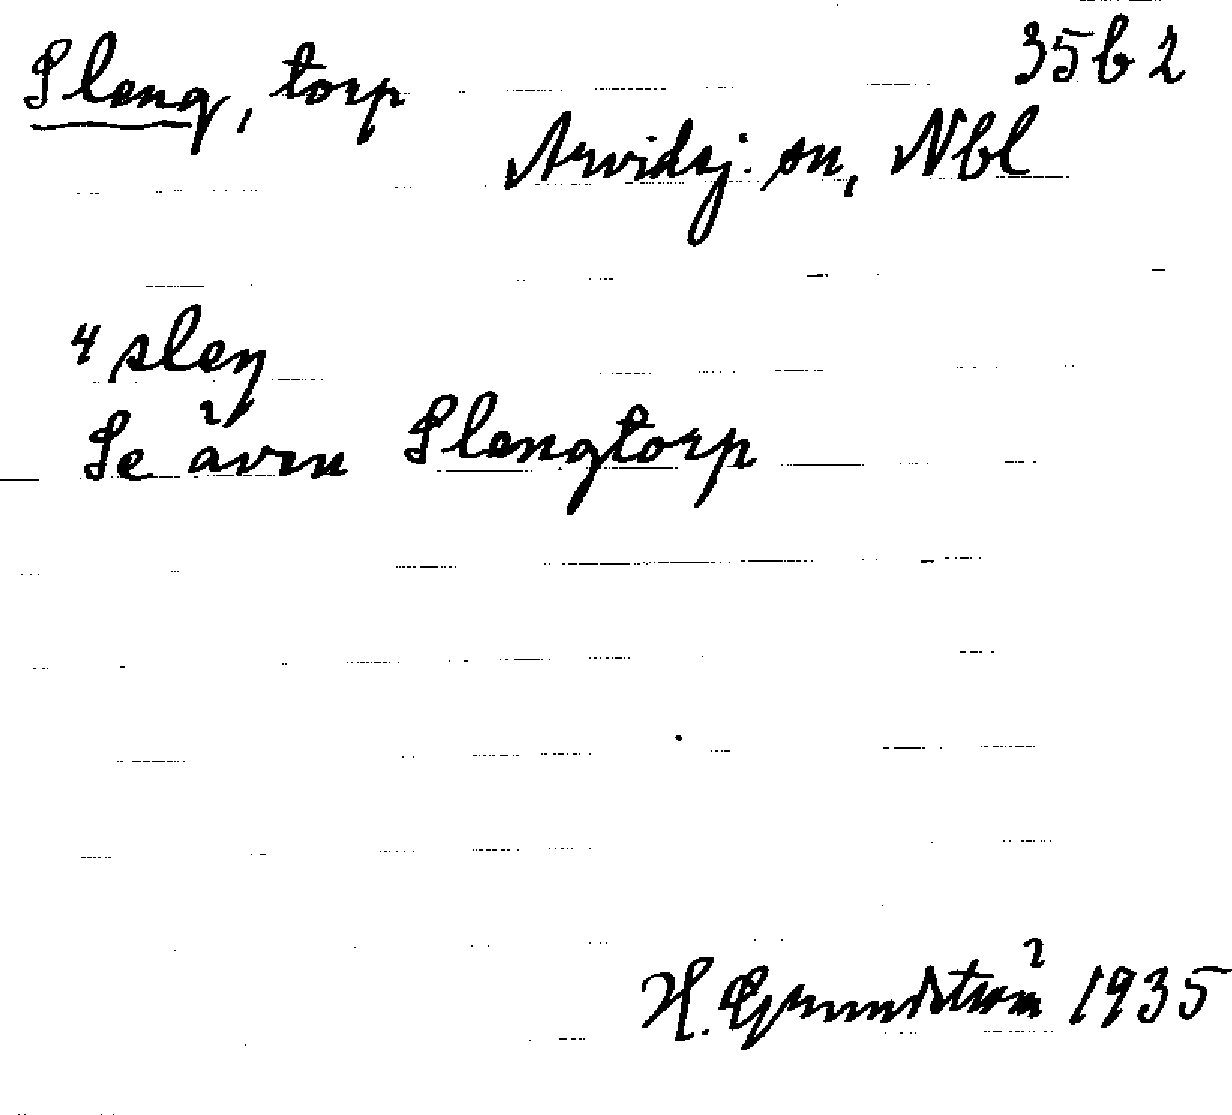 Sleng, torp 35b2
Arvidsj. sn, Nbl
⁴sleŋ
Se även Slengtorp
H. Grundström 1935